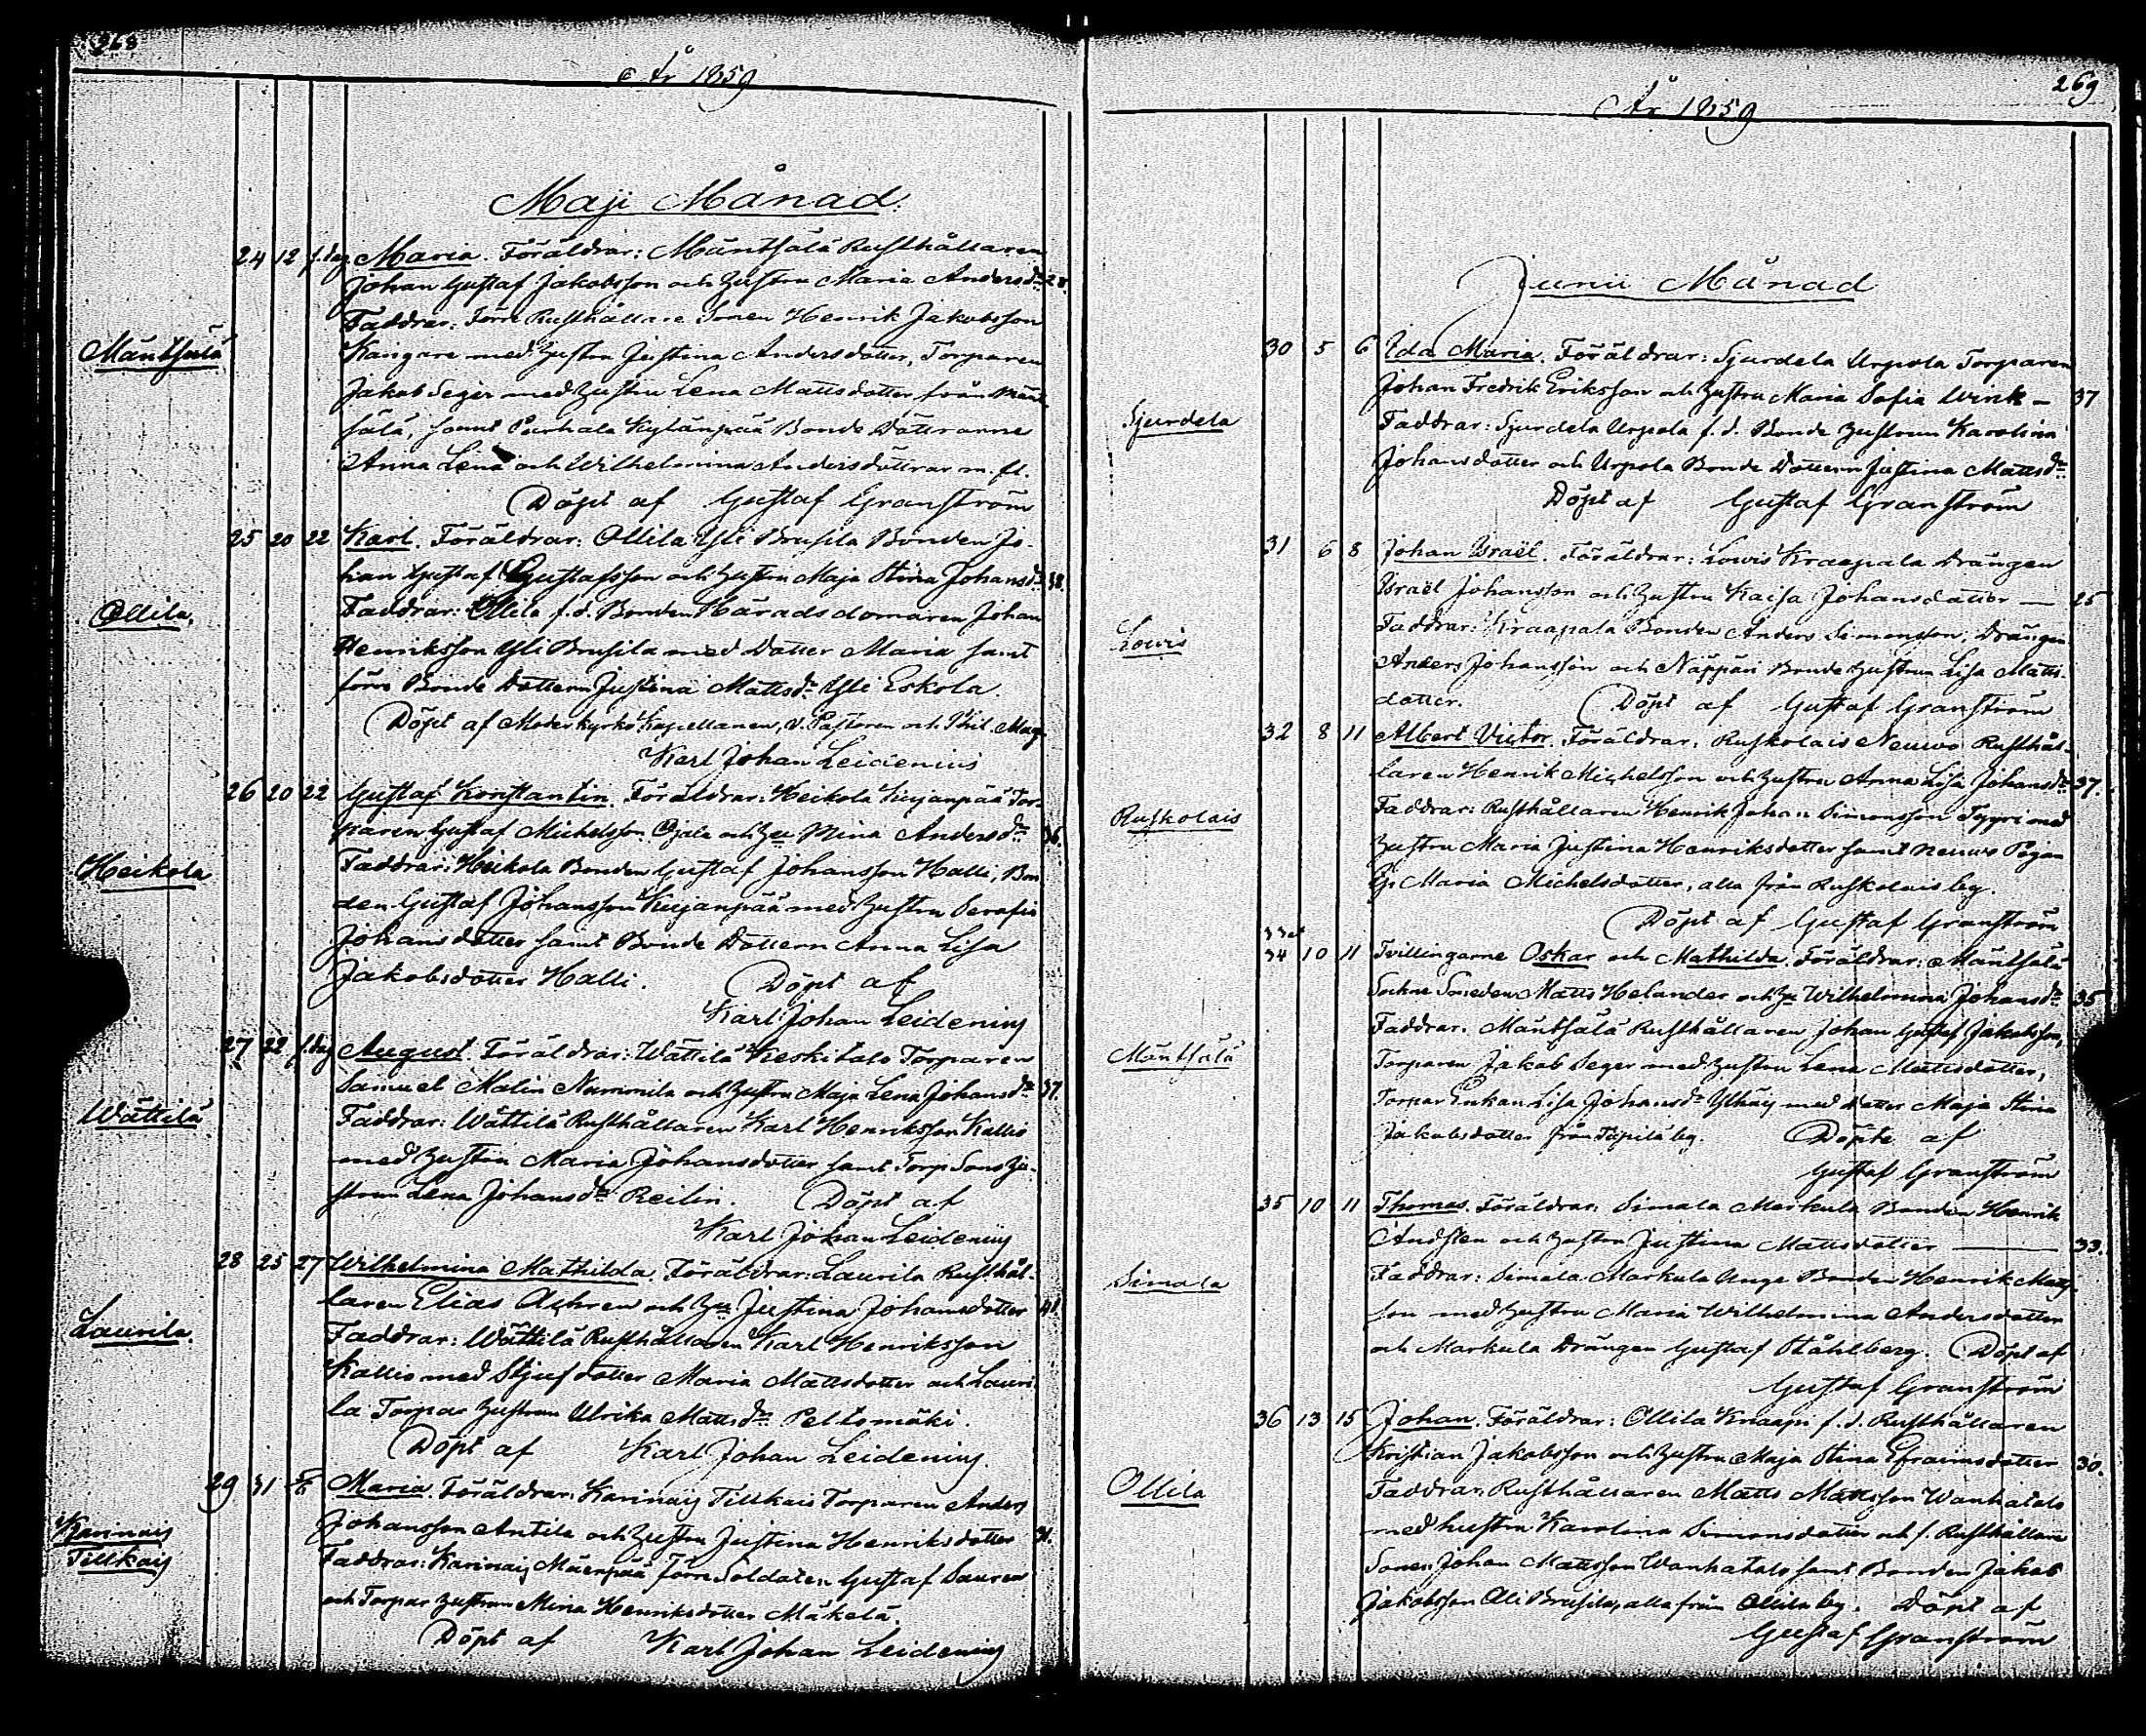 268
År 1859
Maji Månad.
24 12 f. dag Maria. Föräldrar: Mäntsälä Rusthållaren
Johan Gustaf Jakobsson och Hustru Maria Andersdr 28.
Mäntsälä
Faddrar: Förre Rusthållare Sonen Henrik Jakobsson
Kangare med Hustru Justina Andersdotter, Torparen
Jakob Seger med Hustru Lena Mattsdotter från Mänt-
sälä, samt Parhala Kylänpää Bonde Döttrarne
Anna Lena och Wilhelmina Andersdöttrar m. fl.
Döpt af Gustaf Granström
25 20 22 Karl. Föräldrar: Ollila Yli Brusila Bonden Jo-
han Gustaf Gustafsson och Hustru Maja Stina Johansdr 38.
Ollila.
Faddrar: Ollila f. d. Bonden Häradsdomaren Johan
Henriksson Yli Brusila med Dotter Maria samt
förre Bonde Dottern Justina Mattsdr Yli Eskola.
Döpt af Moderkyrko Kapellanen, V. Pastoren och Phil. Mag.
Karl Johan Leidenius
26 20 22 Gustaf Konstantin. Föräldrar: Heikola Kujanpää Tor-
paren Gustaf Michelsson Ojala och Hu Mina Andersdr 36.
Heikola
Faddrar: Heikola Bonden Gustaf Johansson Halli, Bon-
den Gustaf Johansson Kujanpää med Hustru Serafia
Johansdotter samt Bonde Dottern Anna Lisa
Jakobsdotter Halli. Döpt af
Karl Johan Leidenius
27 22 f. dag August. Föräldrar: Wättilä Keskitalo Torparen
Samuel Malin Nummila och Hustru Maja Lena Johansdr 37.
Wättilä
Faddrar: Wättilä Rusthållaren Karl Henriksson Kallio
med Hustru Maria Johansdotter samt Torp. Sons Hu-
strun Lena Johansdr Reilin. Döpt af
Karl Johan Leidenius
28 25 27 Wilhelmina Mathilda. Föräldrar: Laurila Rusthål-
laren Elias Achren och Hu Justina Johansdotter 41.
Laurila.
Faddrar: Wättilä Rusthållaren Karl Henriksson
Kallio med Stjufdotter Maria Mattsdotter och Lauri-
la Torpar Hustrun Ulrika Mattsdr Peltomäki.
Döpt af Karl Johan Leidenius.
29 31 Maria. Föräldrar: Karinais Tillkais Torparen Anders
Johansson Antila och Hustru Justina Henriksdotter 31.
Karinais
Tillkais
Faddrar: Karinais Mäenpää förre Soldaten Gustaf Sauren
och Torpar Hustrun Mina Henriksdotter Mäkelä.
Döpt af Karl Johan Leidenius
269
År 1859
Junii Månad
30 5 6 Ida Maria. Föräldrar: Sjurdela Urpola Torparen
Johan Fredrik Eriksson och Hustru Maria Sofia Wink – 37
Sjurdela
Faddrar: Sjurdela Urpola f. d. Bonde Hustrun Karolina
Johansdotter och Urpola Bonde Dottern Justina Mattsdr
Döpt af Gustaf Granström
31 6 8 Johan Israël. Föräldrar: Lowis Kraapala Drängen
Israël Johansson och Hustru Kaisa Johansdotter — 25
Lowis
Faddrar: Kraapala Bonden Anders Simonsson, Drängen
Anders Johansson och Näppäri Bonde Hustrun Lisa Matts-
dotter. Döpt af Gustaf Granström
32 8 11 Albert Victor. Föräldrar: Ruskolais Neuwo Rusthål-
laren Henrik Michelsson och Hustru Anna Lisa Johansdr 37.
Ruskolais
Faddrar: Rusthållaren Henrik Johan Simonsson Tyyri med
Hustru Maria Justina Henriksdotter samt Neuwo Pigan
Maria Michelsdotter, alla från Ruskolais by.
Döpt af Gustaf Granström
33 et
34 10 11 Tvillingarne Oskar och Mathilda. Föräldrar: Mäntsälä
Sockne Smeden Matts Helander och Hu Wilhelmina Johansdr 35
Mäntsälä
Faddrar: Mäntsälä Rusthållaren Johan Gustaf Jakobsson,
Torparen Jakob Seger med Hustru Lena Mattsdotter,
Torpar Enkan Lisa Johansdr Ylhäis med Dotter Maja Stina
Jakobsdotter från Täpilä by. Döpte af
Gustaf Granström
35 10 11 Thomas. Föräldrar: Simala Markula Bonden Henrik
Andsten och Hustru Justina Mattsdotter — 33.
Simala
Faddrar: Simala Markula Unge Bonden Henrik Matts-
son med Hustru Maria Wilhelmina Andersdotter
och Markula Drängen Gustaf Ståhlberg. Döpt af
Gustaf Granström
36 13 15 Johan. Föräldrar: Ollila Knaapi f. d. Rusthållaren
Kristian Jakobsson och Hustru Maja Stina Efraimsdotter 30.
Ollila
Faddrar: Rusthållaren Matts Mattsson Wanhatalo
med hustru Karolina Simonsdotter och f. Rusthållare
Sonen Johan Mattsson Wanhatalo samt Bonden Jakob
Jakobsson Ali Brusila, alla från Ollila by. Döpt af
Gustaf Granström